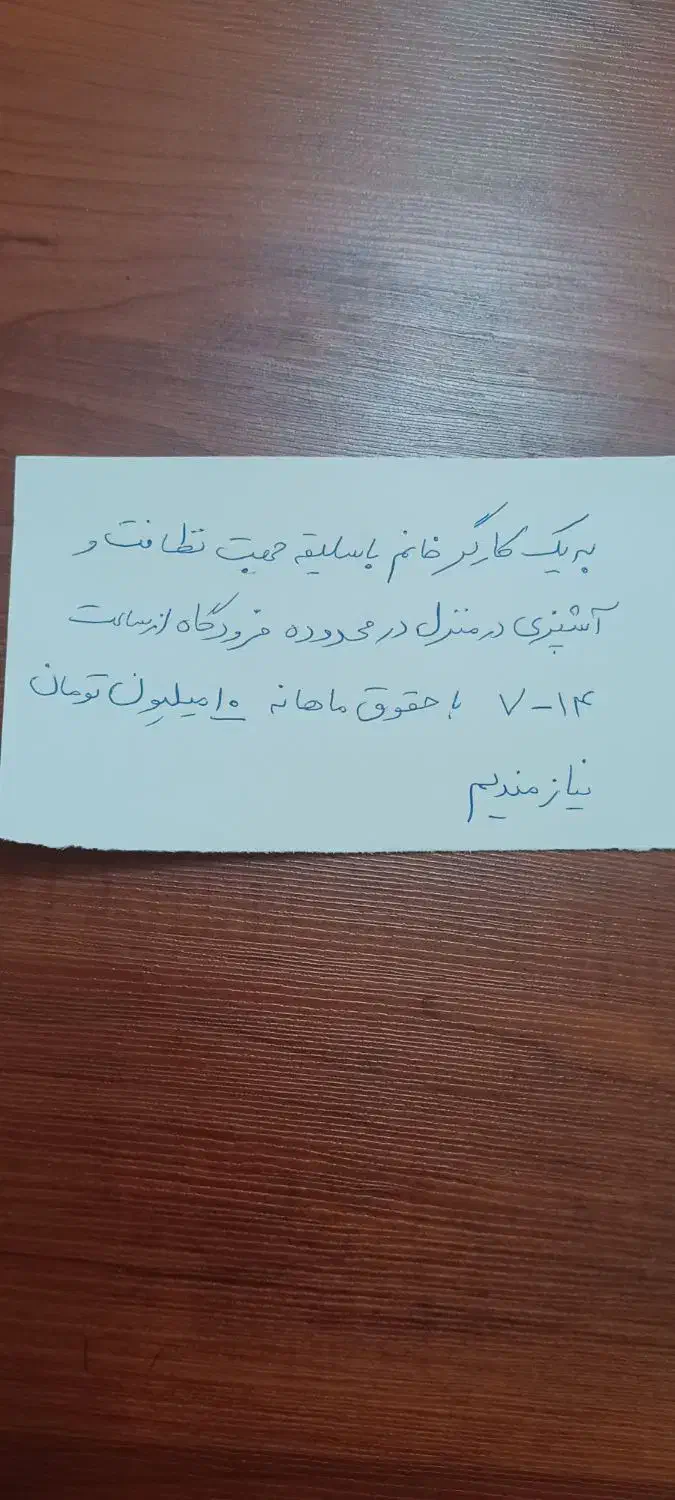 به یک کارگر خانم باسلیقه جهت نظافت و
آشپزی در منزل در محدوده فرودگاه از ساعت
۷-۱۴ با حقوق ماهانه ۱۰ میلیون تومان
نیازمندیم